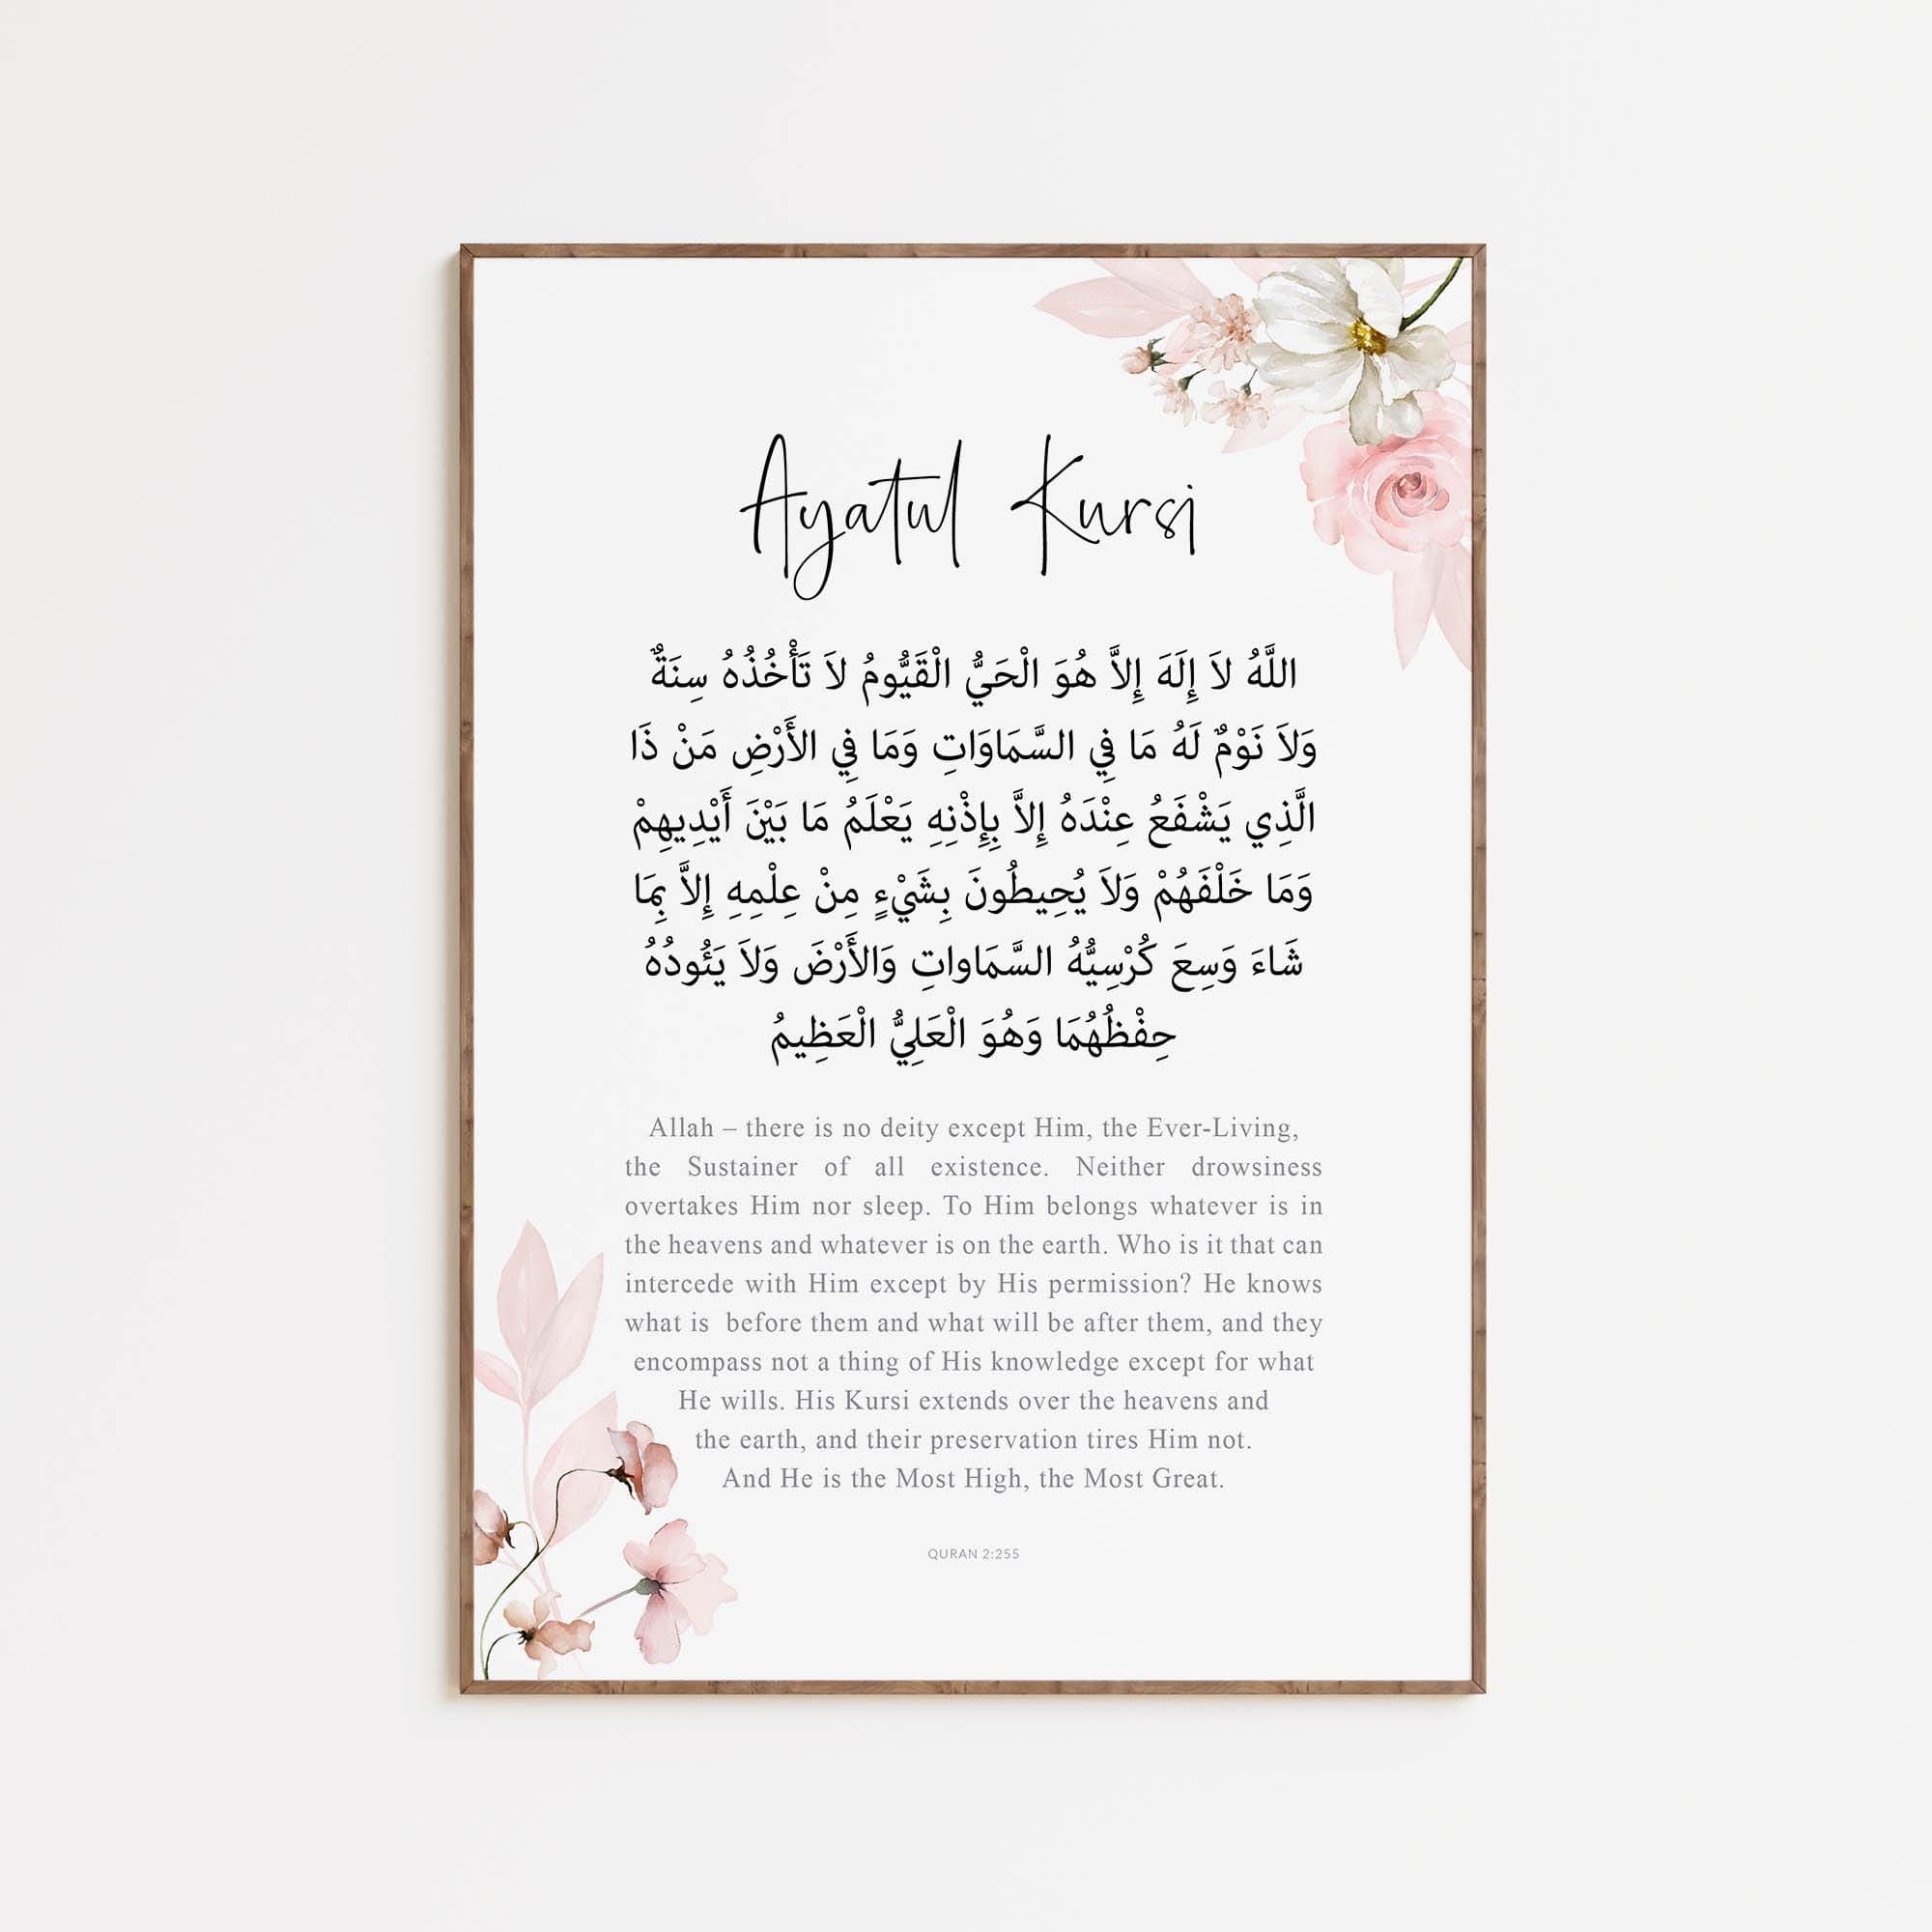 Ayatul Kursi
اللَّهُ لاَ إِلَهَ إِلاَّ هُوَ الْحَيُّ الْقَيُّومُ لاَ تَأْخُذُهُ سِنَةٌ
وَلاَ نَوْمٌ لَهُ مَا فِي السَّمَاوَاتِ وَمَا فِي الأَرْضِ مَنْ ذَا
الَّذِي يَشْفَعُ عِنْدَهُ إِلاَّ بِإِذْنِهِ يَعْلَمُ مَا بَيْنَ أَيْدِيهِمْ
وَمَا خَلْفَهُمْ وَلاَ يُحِيطُونَ بِشَيْءٍ مِنْ عِلْمِهِ إِلاَّ بِمَا
شَاءَ وَسِعَ كُرْسِيُّهُ السَّمَاواتِ وَالأَرْضَ وَلاَ يَئُودُهُ
حِفْظُهُمَا وَهُوَ الْعَلِيُّ الْعَظِيمُ
Allah – there is no deity except Him, the Ever-Living,
the Sustainer of all existence. Neither drowsiness
overtakes Him nor sleep. To Him belongs whatever is in
the heavens and whatever is on the earth. Who is it that can
intercede with Him except by His permission? He knows
what is before them and what will be after them, and they
encompass not a thing of His knowledge except for what
He wills. His Kursi extends over the heavens and
the earth, and their preservation tires Him not.
And He is the Most High, the Most Great.
QURAN 2:255